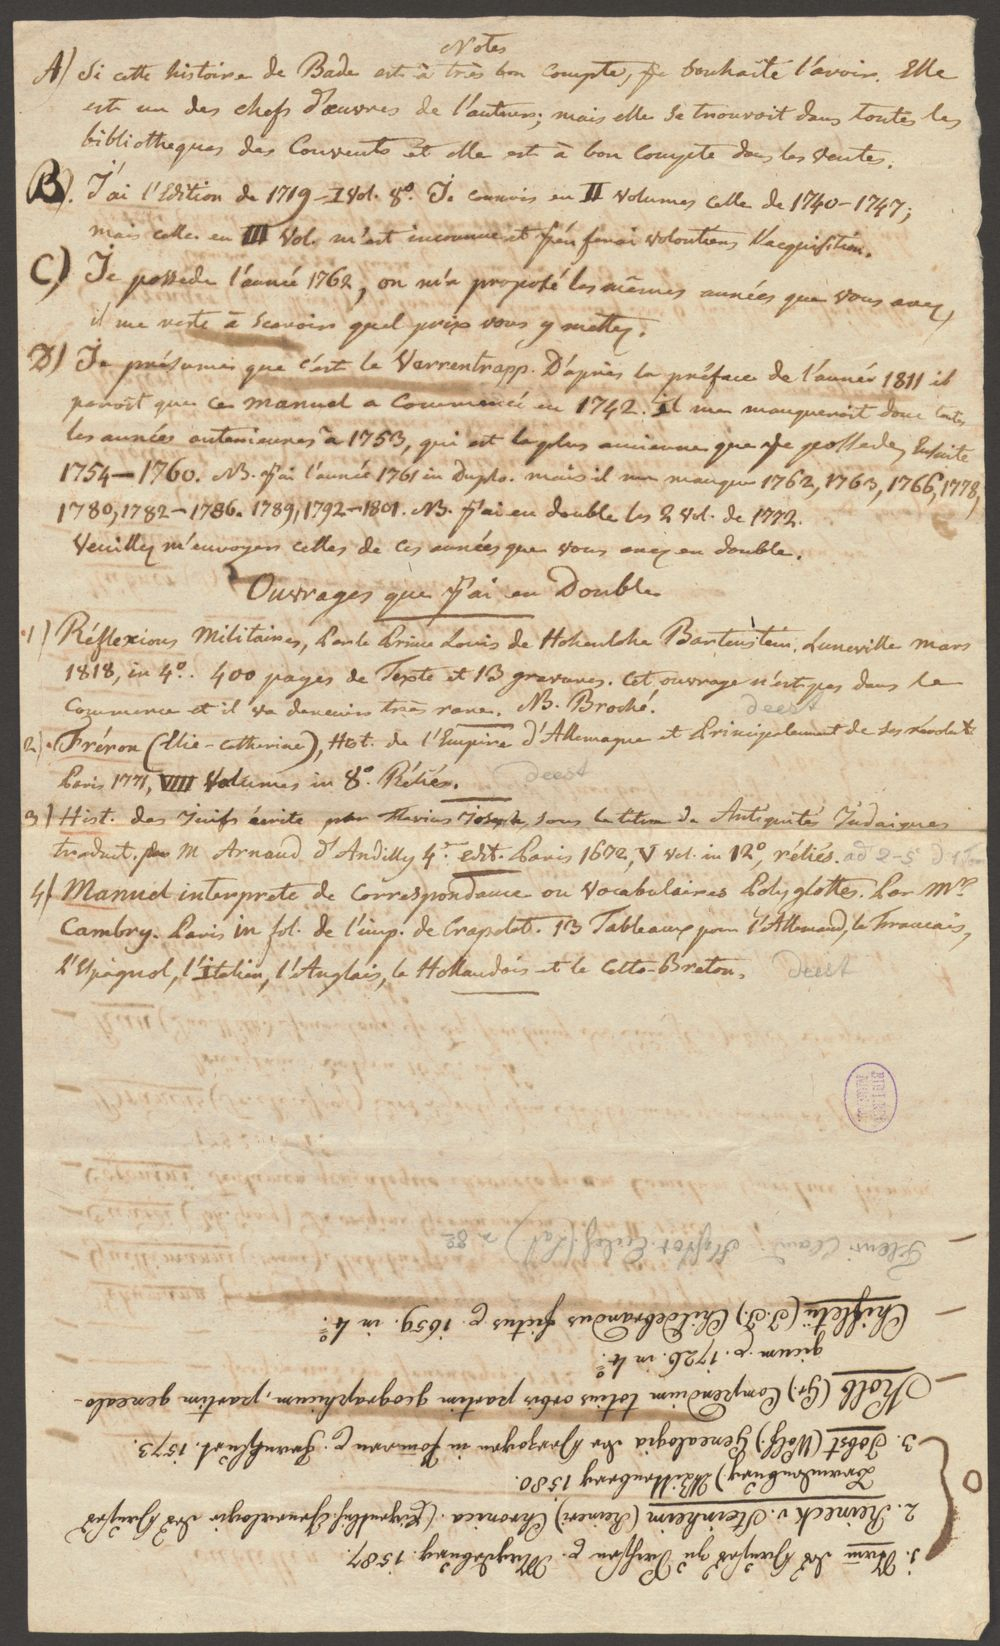 Notes
A) Si cette histoire de Bade est à très bon Compte, je souhaite l'avoir. Elle
est un des chefs d'œuvres de l'auteur; mais elle se trouvoit dans toutes les
bibliotheques des Couvents et elle est à bon Compte dans les ventes.
B). J'ai l'Edition de 1719 – I Vol. 8º. Je connois en II Volumes celle de 1740–1747;
mais celle en III Vol. m'est inconnue et j'en ferai volontiers l'acquisition.
C) Je possede l'année 1762, on m'a proposé les mêmes années que vous avez,
il me reste à scavoir quel prix vous y mettez.
D) Je présume que c'est le Varrentrapp. D'après la préface de l'année 1811 il
paroit que ce manuel a Commencé en 1742. Il me manqueroit donc toutes
les années anterieures à 1753, qui est la plus ancienne que je possede, Ensuite
1754–1760. NB. J'ai l'année 1761 in Duplo. mais il me manque 1762, 1763, 1766, 1778,
1780, 1782–1786. 1789, 1792–1801. NB. J'ai en double les 2 Vol. de 1772.
Veuillez m'envoyer celles de ces années que vous avez en double.
Ouvrages que J'ai en Double
1) Réflexions Militaires, Par le Prince Louis de Hohenlohe Bartenstein. Luneville mars
1818, in 4º. 400 pages de Texte et 13 gravures. Cet ouvrage n'est pas dans le
Commerce et il va devenir très rare. NB. Broché. deest
2) Fréron (Elie-Catherine), Hist. de l'Empire d'Allemagne et Principalement de ses révolut.
Paris 1771, VIII Volumes in 8º. Réliés. deest
3) Hist. des Juifs écrite par Flavius Joseph, sous le titre de Antiquités Judaiques
traduit. par M Arnaud d'Andilly 4e. edit. Paris 1672, V vol. in 12º, réliés. ad 2–5
4) Manuel interprete de Correspondance ou Vocabulaires Polyglottes. Par Mr.
Cambry. Paris in fol. de l'imp. de Crapelet. 13 Tableaux pour l'Allemand, le Francais,
l'Espagnol, l'Italien, l'Anglais, le Hollandois et le Celto-Breton. deest
1. des zu 1587.
2. Reineck v. Steinheim (Reineri) Chronica.
Brandenburg) Wittenberg 1580.
3. Jobst (Wolfg.) Genealogia der Herzogen in Pomeren &. Franckfurt. 1573.
Kolb (Gr.) Compendium totius orbis partim geographicum, partim genealo-
gicum &. 1726. in 4º.
Chifletii (J. J.) Childebrandus fictus &. 1659. in 4º.